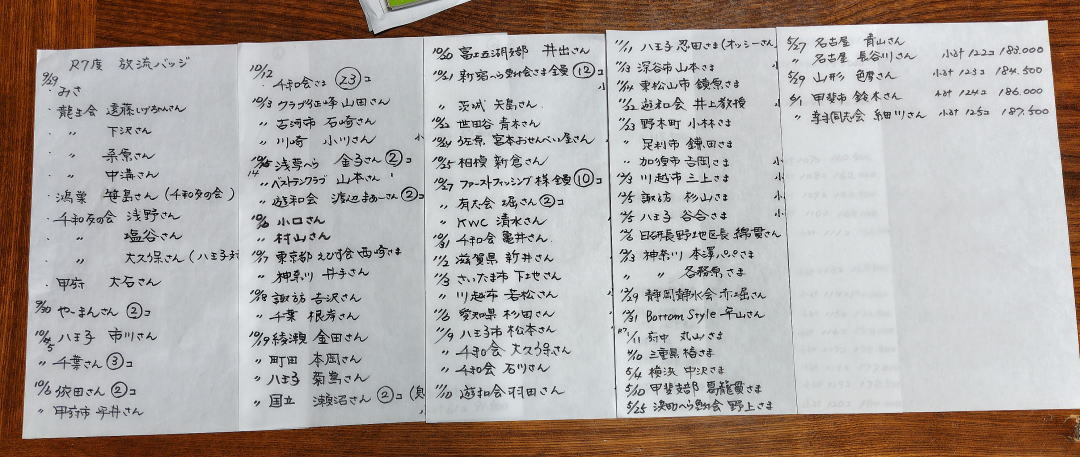 R7度 放流バッジ
9/29 みさ
龍生会 遠藤しげちゃんさん
〃 下沢さん
〃 桑原さん
〃 中溝さん
鴻巣 笹島さん (千和友の会)
千和友の会 浅野さん
〃 塩谷さん
〃 大久保さん (八王子
甲府 大石さん
9/30 やーまんさん ②コ
八王子 市川さん
〃 千葉さん ③コ
10/6 依田さん ②コ
〃 甲府市 さん
10/12
千和会さま 23コ
10/13 クラブ 山田さん
〃 古河市 石崎さん
〃 川崎 小川さん
浅草へら 金子さん ②コ
14 〃 ベストランクラブ 山本さん
〃 遊和会 渡辺まあーさん ②コ
小口さん
〃 村山さん
東京都 えびす会 西崎さま
神奈川 丹子さん
諏訪 吉沢さん
〃 千葉 根岸さん
10/19 綾瀬 金田さん
〃 町田 本岡さん
〃 八王子 菊嶌さん
〃 国立 瀬沼さん ②コ
10/20 富士五湖支部 井出さん
10/21 新宿へら会さま 全員 ⑫コ
〃 茨城 矢島さん
世田谷 青木さん
佐原 宮本おせんべい屋さん
10/25 相模 新倉さん
10/27 ファーストフィッシング様 全員 ⑩コ
〃 有志会 堀さん ②コ
〃 KWC 清水さん
千和会 亀井さん
滋賀県 新井さん
さいたま市 下地さん
〃 川越市 若松さん
愛知県 杉田さん
11/9 八王子市 松本さん
〃 千和会 大久保さん
〃 千和会 石川さん
11/10 遊和会 羽田さん
11/11 八王子 忍田さま (オッシーさん
深谷市 山本さま
東松山市 鏡原さま
遊和会 井上教授
野木町 小林さま
〃 足利市 鎌田さま
〃 加須市 吉岡さま
川越市 三上さま
諏訪 杉山さま
八王子 谷合さま
日研長野地区長 綿貫さん
神奈川 本澤パパさま
〃 〃 各務原さま
12/29 静岡静水会 赤堀さん
12/31 Bottom Style 平山さん
R7 1/11 府中 丸山さま
三重県 椿さま
5/4 横浜 中沢さま
5/10 甲斐支部 葛籠貫さま
5/25 浜町へら会 野上さま
5/27 名古屋 青山さん
〃 名古屋 長谷川さん 小計 122コ 183.000
5/29 山形 色摩さん 小計 123コ 184.500
6/1 甲斐市 鈴木さん 小計 124コ 186.000
〃 同志会 細川さん 小計 125コ 187.500